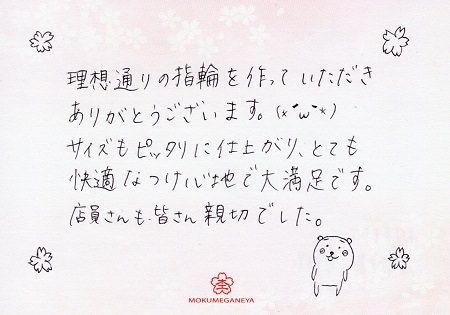 理想通りの指輪を作っていただき
ありがとうございます。(*´ω`*)
サイズもピッタリに仕上がり、とても
快適なつけ心地で大満足です。
店員さんも皆さん親切でした。
MOKUMEGANEYA